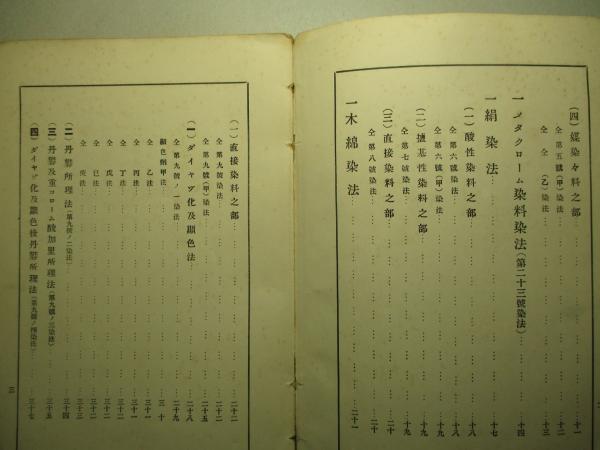 (四)媒染々料之部 十一
全第五號(甲)染法 十二
全 全 (乙)染法 十三
一メタクローム染料染法(第二十三號染法) 十四
一絹染法 十七
(一)酸性染料之部 十八
全第六號染法 十八
全第六號(甲)染法 十九
(二)塩基性染料之部 十九
全第七號染法 十九
(三)直接染料之部 二十
全第八號染法 二十
一木綿染法 二十一
(一)直接染料之部 二十二
全第九號染法 二十二
全第九號(甲)染法 二十五
(一)ダイヤゾ化及顯色法 二十八
全第九號ノ一染法 二十九
顯色劑甲法 三十
全 乙法 三十一
全 丙法 三十一
全 丁法 三十二
全 戊法 三十二
全 巳法 三十二
全 庚法 三十三
(二)丹礬所理法(第九號ノ二染法) 三十四
(三)丹礬及重コローム酸加里所理法(第九號ノ三染法) 三十五
(四)ダイヤゾ化及顯色後丹礬所理法(第九號ノ四染法) 三十七
三